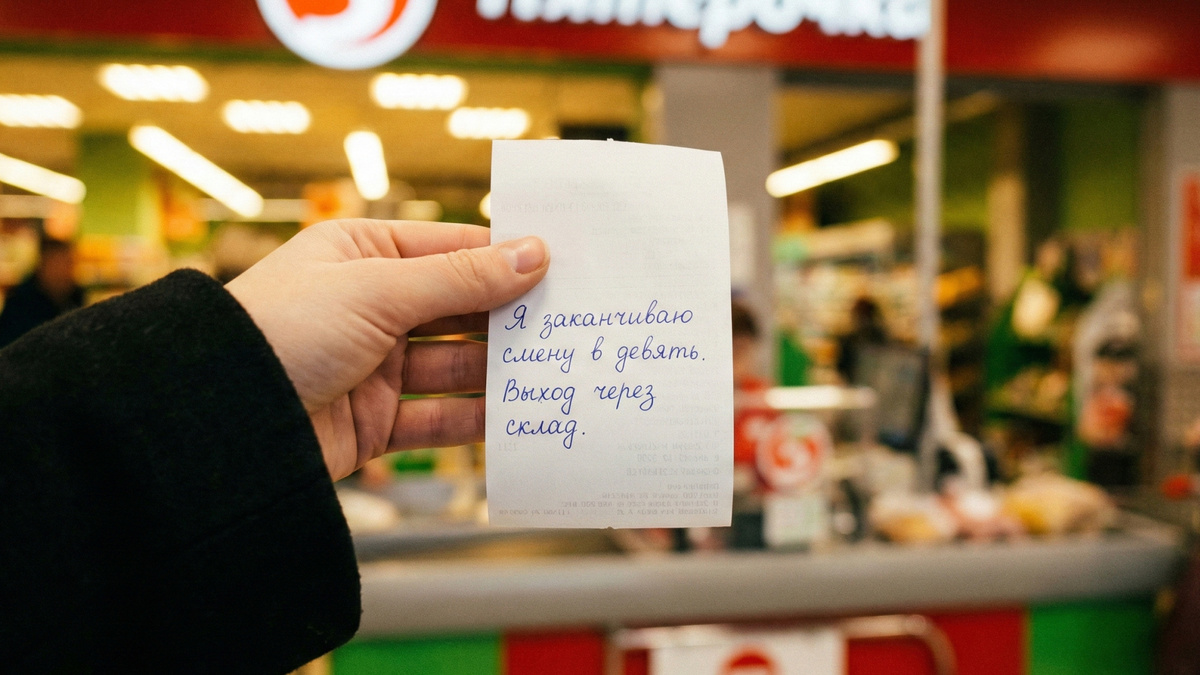 Пятёрочка
Я заканчиваю
смену в девять.
Выход через
склад.